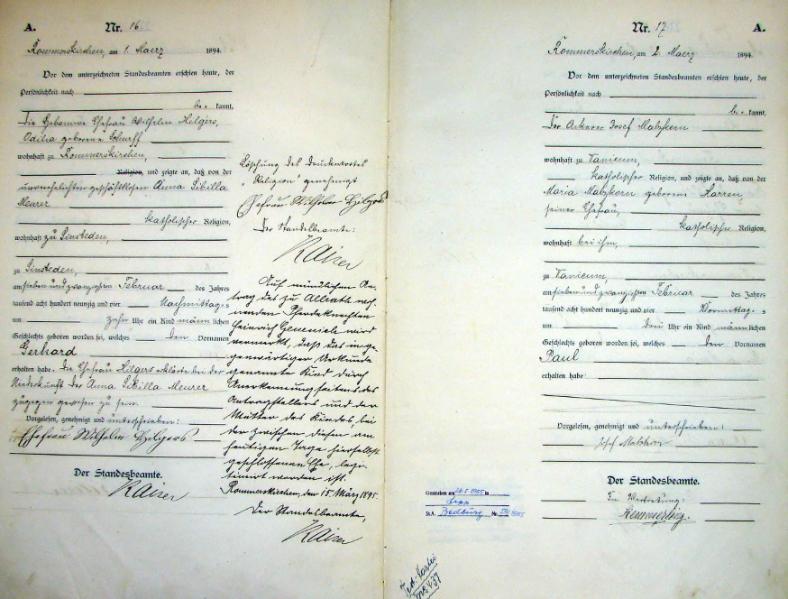 A.
Nr. 16
Rommerskirchen, am 1. Maerz 1894.
Vor dem unterzeichneten Standesbeamten erschien heute, der
Persönlichkeit nach
be kannt,
die Hebamme Ehefrau Wilhelm Hilgers,
Odilia geborene Schurff
wohnhaft zu Rommerskirchen,
Religion, und zeigte an, daß von der
unverehelichten geschäftslosen Anna Sibilla
Meurer
katholischer Religion,
wohnhaft zu Sinsteden,
zu Sinsteden,
am sieben und zwanzigsten Februar des Jahres
tausend acht hundert neunzig und vier Nachmittags
um zehn Uhr ein Kind männlichen
Geschlechts geboren worden sei, welches den Vornamen
Gerhard
erhalten habe. Die Ehefrau Hilgers erklärte bei der
Niederkunft der Anna Sibilla Meurer
zugegen gewesen zu sein.
Vorgelesen, genehmigt und unterschrieben:
Ehefrau Wilhelm Hilgers
Der Standesbeamte.
Kaiser
Löschung des Druckwortes
„Religion" genehmigt
Ehefrau Wilhelm Hilgers
Der Standesbeamte:
Kaiser
Auf mündlichen An-
trag des zu Allrath woh-
nenden Pferdeknechten
Heinrich wird
vermerkt, dass das in ge-
genwärtiger Urkunde
genannte Kind durch
Anerkennung seitens des
Antragstellers und der
Mutter des Kindes bei
der zwischen diesen am
heutigen Tage hierselbst
geschlossenen Ehe, legi-
timirt worden ist.
Rommerskirchen, den 15. März 1895.
Der Standesbeamte,
Kaiser
Nr. 17
A.
Rommerskirchen, am 2. Maerz 1894.
Vor dem unterzeichneten Standesbeamten erschien heute, der
Persönlichkeit nach
be kannt,
Der Ackerer Josef Matzkern
wohnhaft zu Vanicum,
katholischer Religion, und zeigte an, daß von der
Maria Matzkern geborene Karren,
seiner Ehefrau,
katholischer Religion,
wohnhaft bei ihm,
zu Vanicum,
am sieben und zwanzigsten Februar des Jahres
tausend acht hundert neunzig und vier Vormittags
um drei Uhr ein Kind männlichen
Geschlechts geboren worden sei, welches den Vornamen
Paul
erhalten habe
Vorgelesen, genehmigt und unterschrieben:
Josef Matzkern
Der Standesbeamte.
In Vertretung:
St.A. Bedburg Nr.